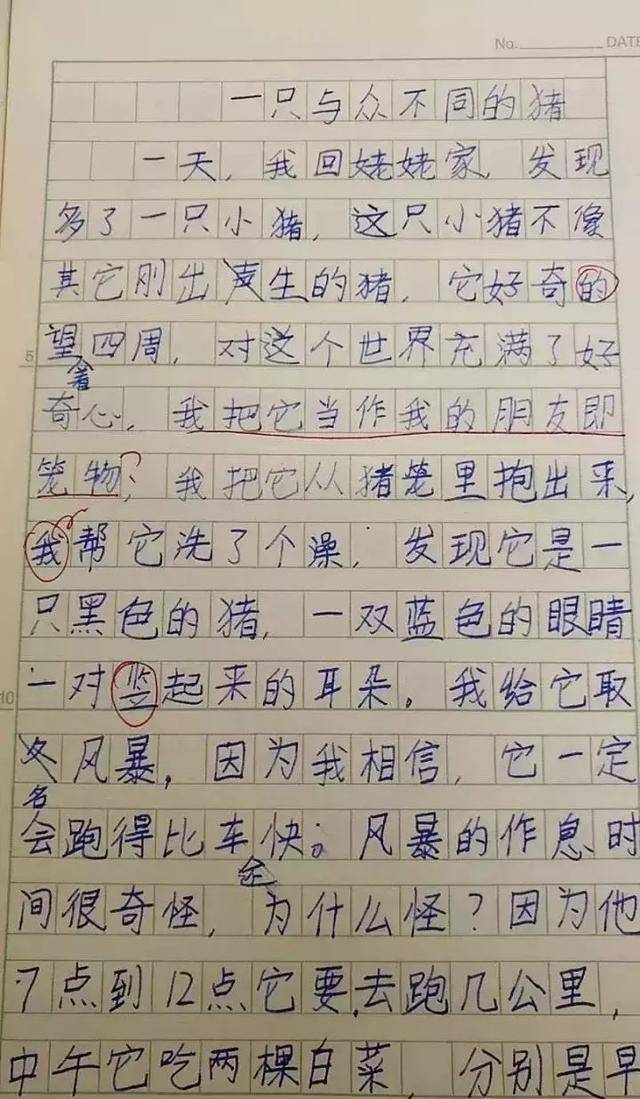 No. DATE
一只与众不同的猪
一天，我回姥姥家，发现
多了一只小猪，这只小猪不像
其它刚出生的猪，它好奇的
5 望着四周，对这个世界充满了好
奇心，我把它当作我的朋友即
笼物，我把它从猪笼里抱出来，
我帮它洗了个澡，发现它是一
只黑色的猪，一双蓝色的眼睛
10 一对竖起来的耳朵。我给它取
名风暴，因为我相信，它一定
会跑得比车快。风暴的作息时
间很奇怪，为什么怪？因为他
7点到12点它要去跑几公里，
中午它吃两棵白菜，分别是早